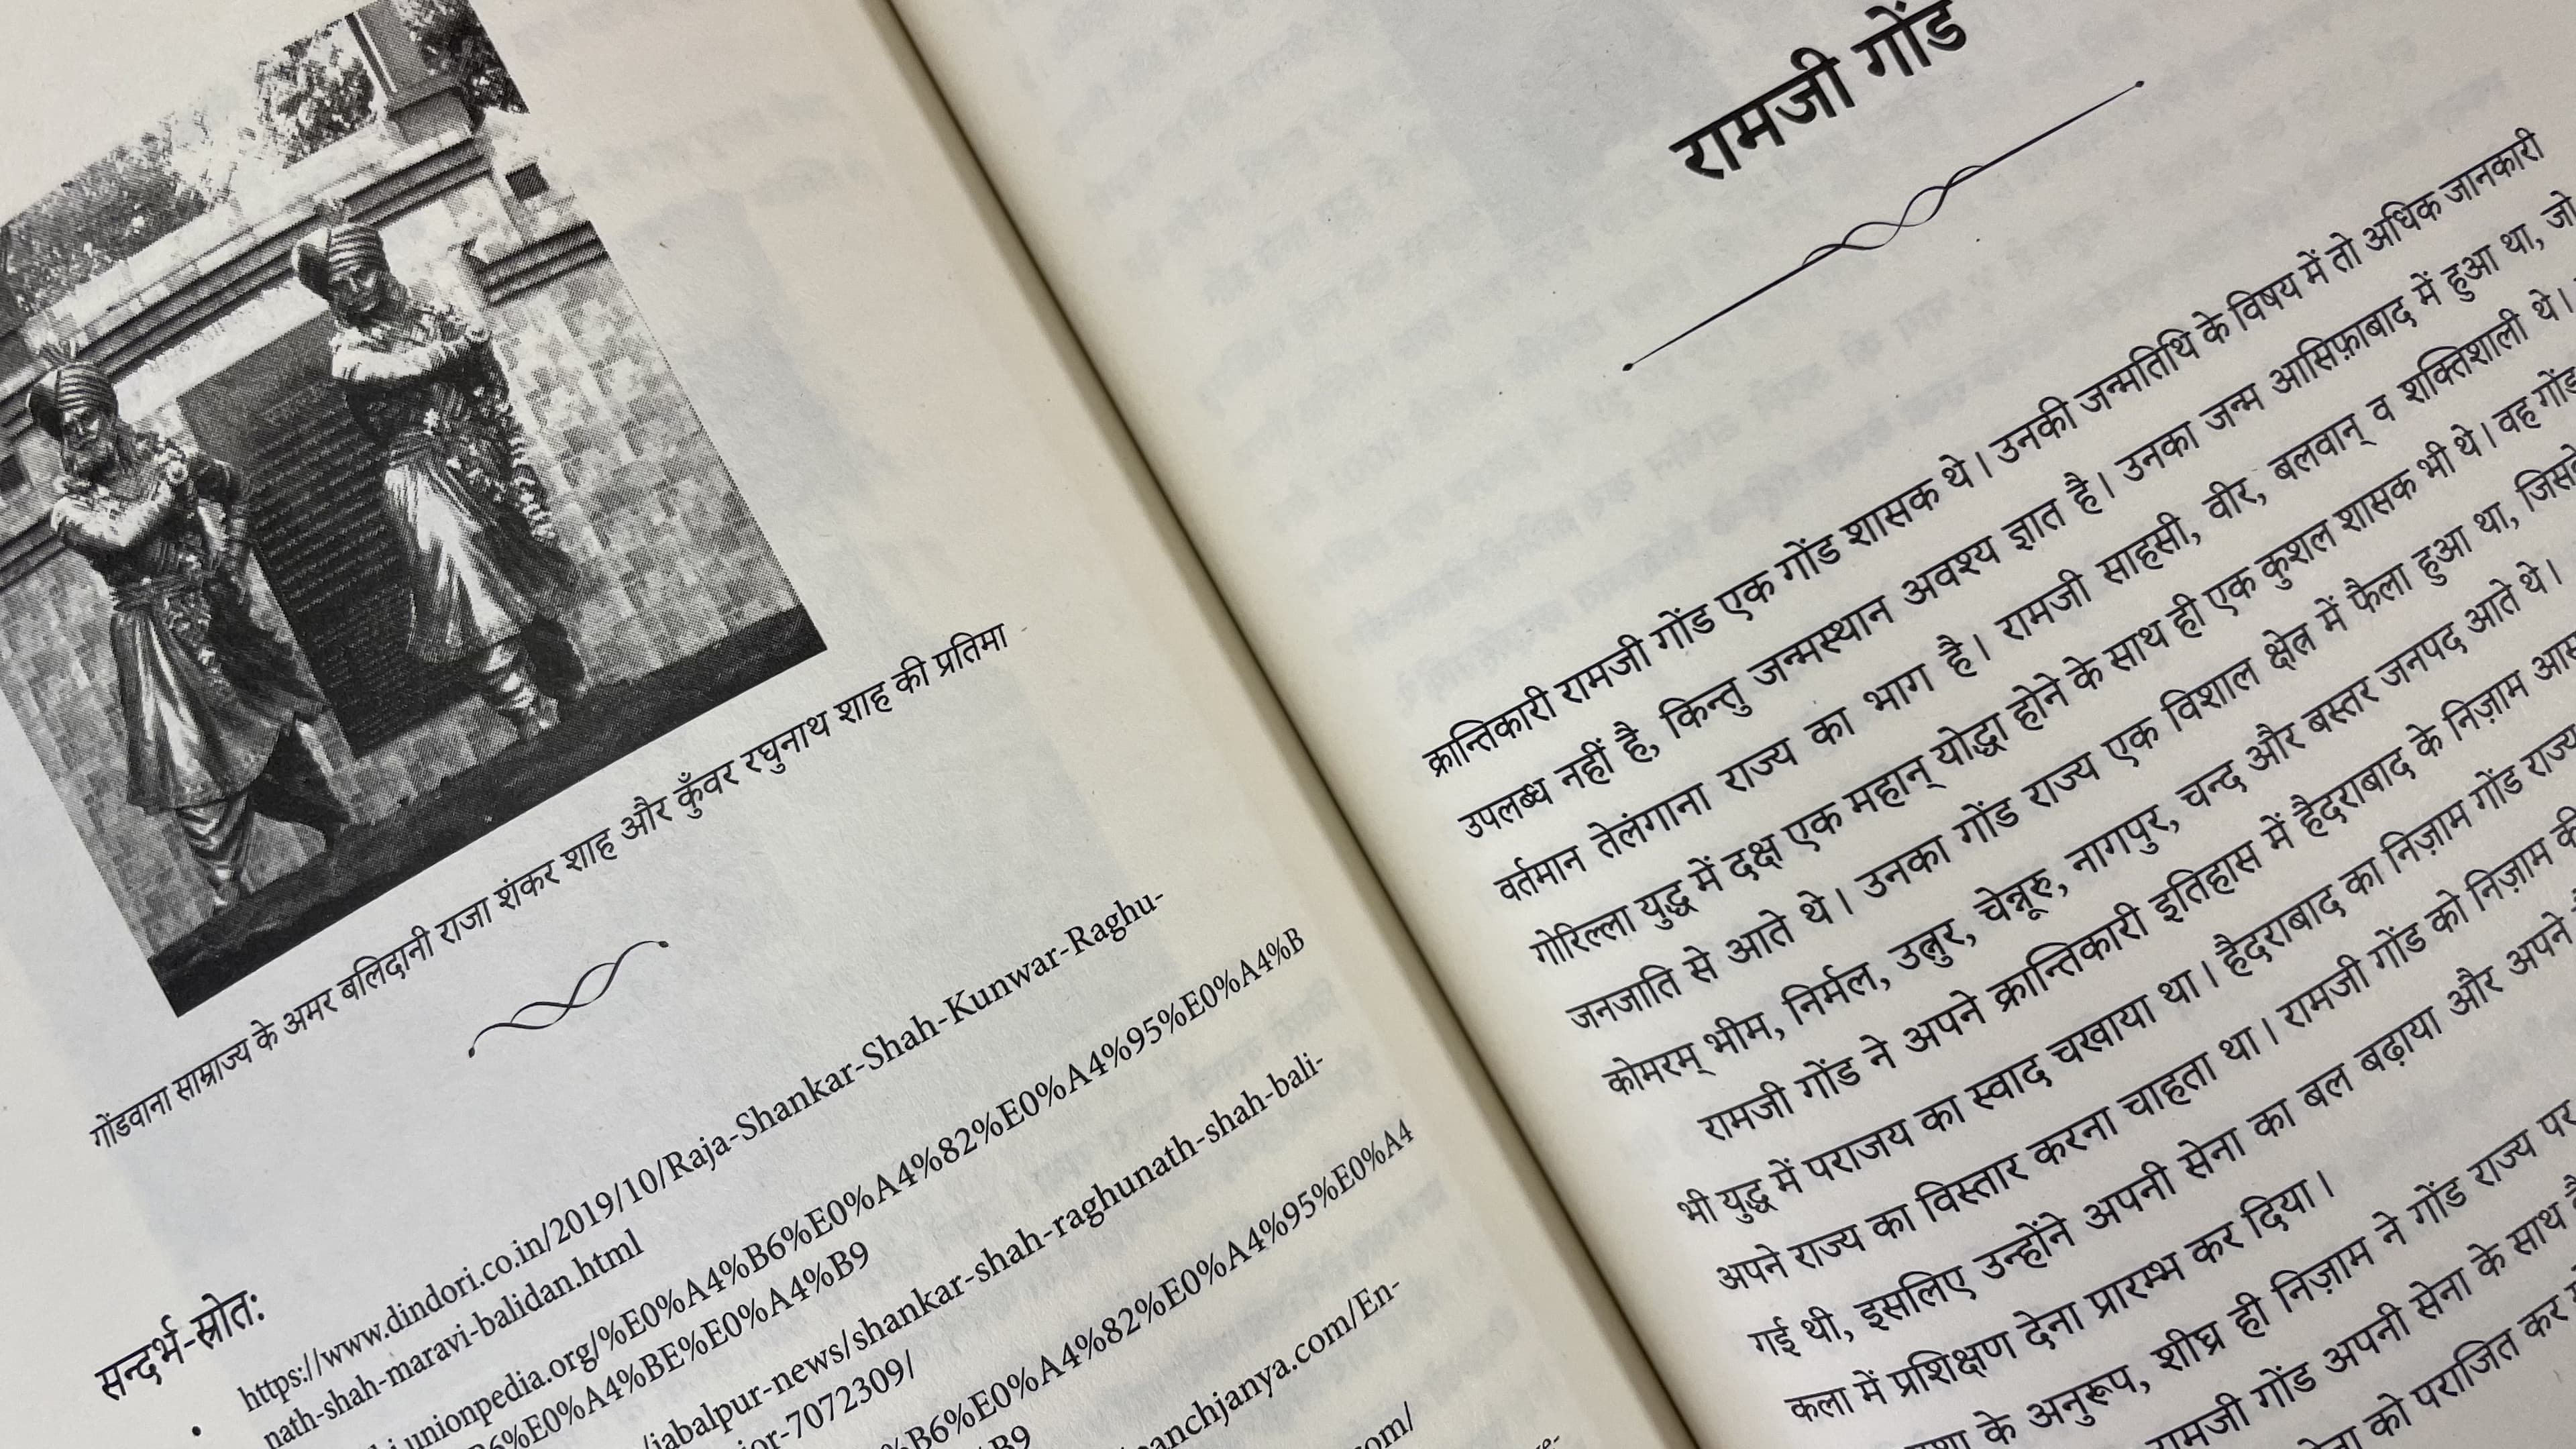 गोंडवाना साम्राज्य के अमर बलिदानी राजा शंकर शाह और कुँवर रघुनाथ शाह की प्रतिमा
सन्दर्भ-स्रोत:
• https://www.dindori.co.in/2019/10/Raja-Shankar-Shah-Kunwar-Raghu-
nath-shah-maravi-balidan.html
unionpedia.org/%E0%A4%B6%E0%A4%82%E0%A4%95%E0%A4%B
6%E0%A4%BE%E0%A4%B9
/jabalpur-news/shankar-shah-raghunath-shah-bali-
or-7072309/
%B6%E0%A4%82%E0%A4%95%E0%A4
%B9
panchjanya.com/En-
com/
रामजी गोंड
क्रान्तिकारी रामजी गोंड एक गोंड शासक थे। उनकी जन्मतिथि के विषय में तो अधिक जानकारी
उपलब्ध नहीं है, किन्तु जन्मस्थान अवश्य ज्ञात है। उनका जन्म आसिफ़ाबाद में हुआ था, जो
वर्तमान तेलंगाना राज्य का भाग है। रामजी साहसी, वीर, बलवान् व शक्तिशाली थे।
गोरिल्ला युद्ध में दक्ष एक महान् योद्धा होने के साथ ही एक कुशल शासक भी थे। वह गोंड
जनजाति से आते थे। उनका गोंड राज्य एक विशाल क्षेत्र में फैला हुआ था, जिसके
कोमरम् भीम, निर्मल, उत्नुर, चेन्नूरु, नागपुर, चन्द और बस्तर जनपद आते थे।
रामजी गोंड ने अपने क्रान्तिकारी इतिहास में हैदराबाद के निज़ाम
भी युद्ध में पराजय का स्वाद चखाया था। हैदराबाद का निज़ाम गोंड राज्य
अपने राज्य का विस्तार करना चाहता था। रामजी गोंड को निज़ाम की
गई थी, इसलिए उन्होंने अपनी सेना का बल बढ़ाया और अपने
कला में प्रशिक्षण देना प्रारम्भ कर दिया।
के अनुरूप, शीघ्र ही निज़ाम ने गोंड राज्य पर
रामजी गोंड अपनी सेना के साथ
को पराजित कर